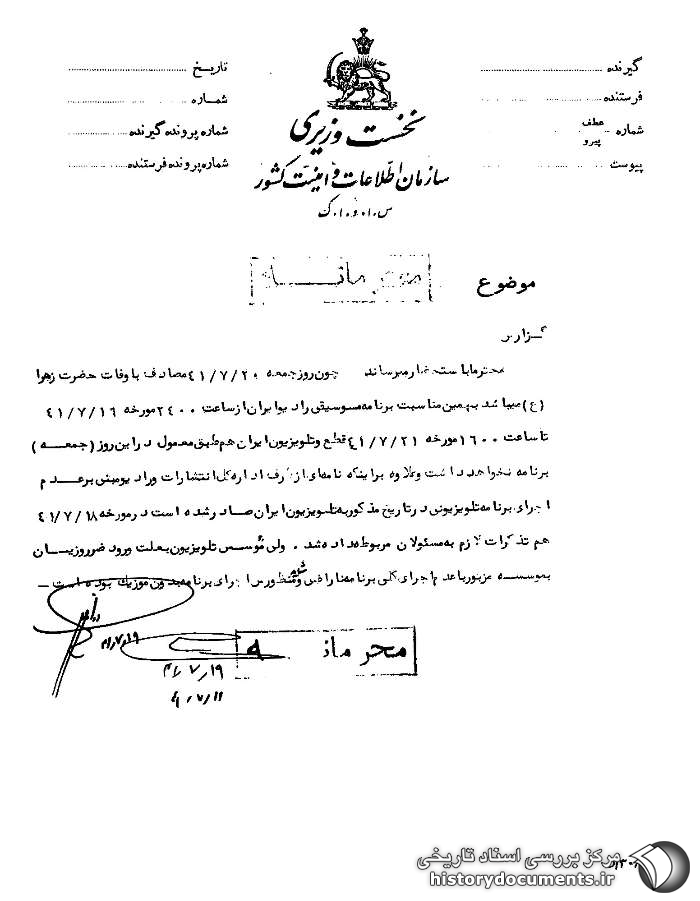 گیرنده
فرستنده
شماره عطف پیرو
پیوست
نخست وزیری
سازمان اطلاعات و امنیت کشور
س.ا.و.ا.ک
تاریخ
شماره
شماره پرونده گیرنده
شماره پرونده فرستنده
موضوع
محرمانه
گزارش
محترما باستحضار میرساند چون روز جمعه ۴۱/۷/۲۰ مصادف با وفات حضرت زهرا
(ع) میباشد بهمین مناسبت برنامه موسیقی رادیو ایران از ساعت ۲۴۰۰ مورخه ۴۱/۷/۱۶
تا ساعت ۱۶۰۰ مورخه ۴۱/۷/۲۱ قطع و تلویزیون ایران هم طبق معمول در این روز (جمعه)
برنامه نخواهد داشت وعلاوه براینکه نامه‌ای از طرف اداره کل انتشارات ورادیو مبنی برعدم
اجرای برنامه تلویزیونی در تاریخ مذکور به تلویزیون ایران صادر شده است در مورخه ۴۱/۷/۱۸
هم تذکرات لازم به مسئولان مربوط داده شد. ولی مؤسس تلویزیون بعلت ورود ضرروزیان
بموسسه مزبور با عدم اجرای کلی برنامه ناراضی شده و منظورش اجرای برنامه بدون موزیک بوده است
۴۱/۷/۱۹
محرمانه
۴۱/۷/۱۹
مرکز بررسی اسناد تاریخی
historydocuments.ir